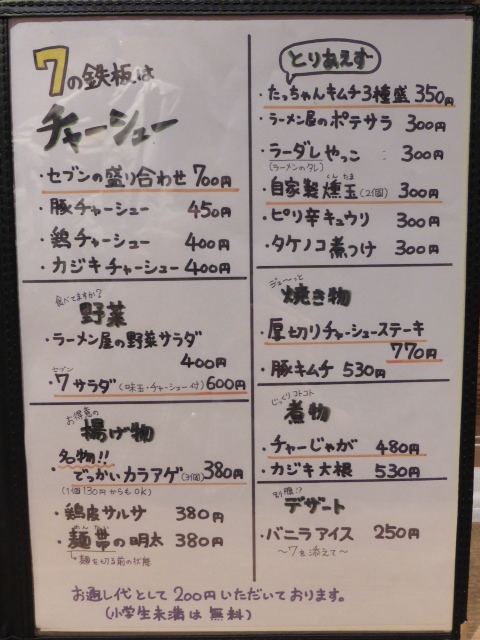 7の鉄板は
チャーシュー
・セブンの盛り合わせ 700円
・豚チャーシュー 450円
・鶏チャーシュー 400円
・カジキチャーシュー 400円
食べてますか?
野菜
・ラーメン屋の野菜サラダ
400円
セブン
・7サラダ(味玉・チャーシュー付) 600円
お得意の
揚げ物
・名物!!
でっかいカラアゲ(3個) 380円
(1個130円からもOK)
・鶏皮サルサ 380円
めんたい
・麺帯の明太 380円
麺を切る前の状態
とりあえず
・たっちゃんキムチ3種盛 350円
・ラーメン屋のポテサラ 300円
・ラーダレやっこ 300円
(ラーメンのタレ)
くんたま
・自家製燻玉(2個) 300円
・ピリ辛キュウリ 300円
・タケノコ煮つけ 300円
ジューーっと
焼き物
・厚切りチャーシューステーキ
770円
・豚キムチ 530円
じっくりコトコト
煮物
・チャーじゃが 480円
・カジキ大根 530円
別腹!?
デザート
・バニラアイス 250円
～7を添えて～
お通し代として200円いただいております。
(小学生未満は無料)